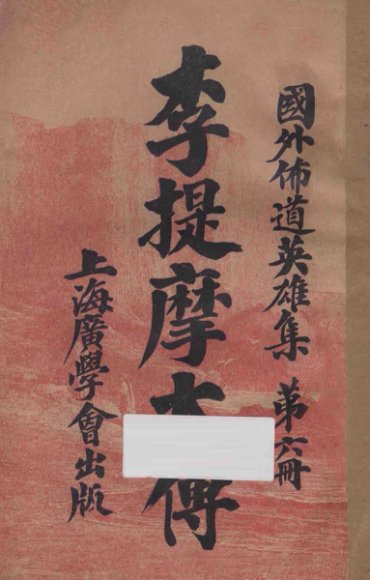 國外佈道英雄集 第六冊
李提摩太傳
上海廣學會出版